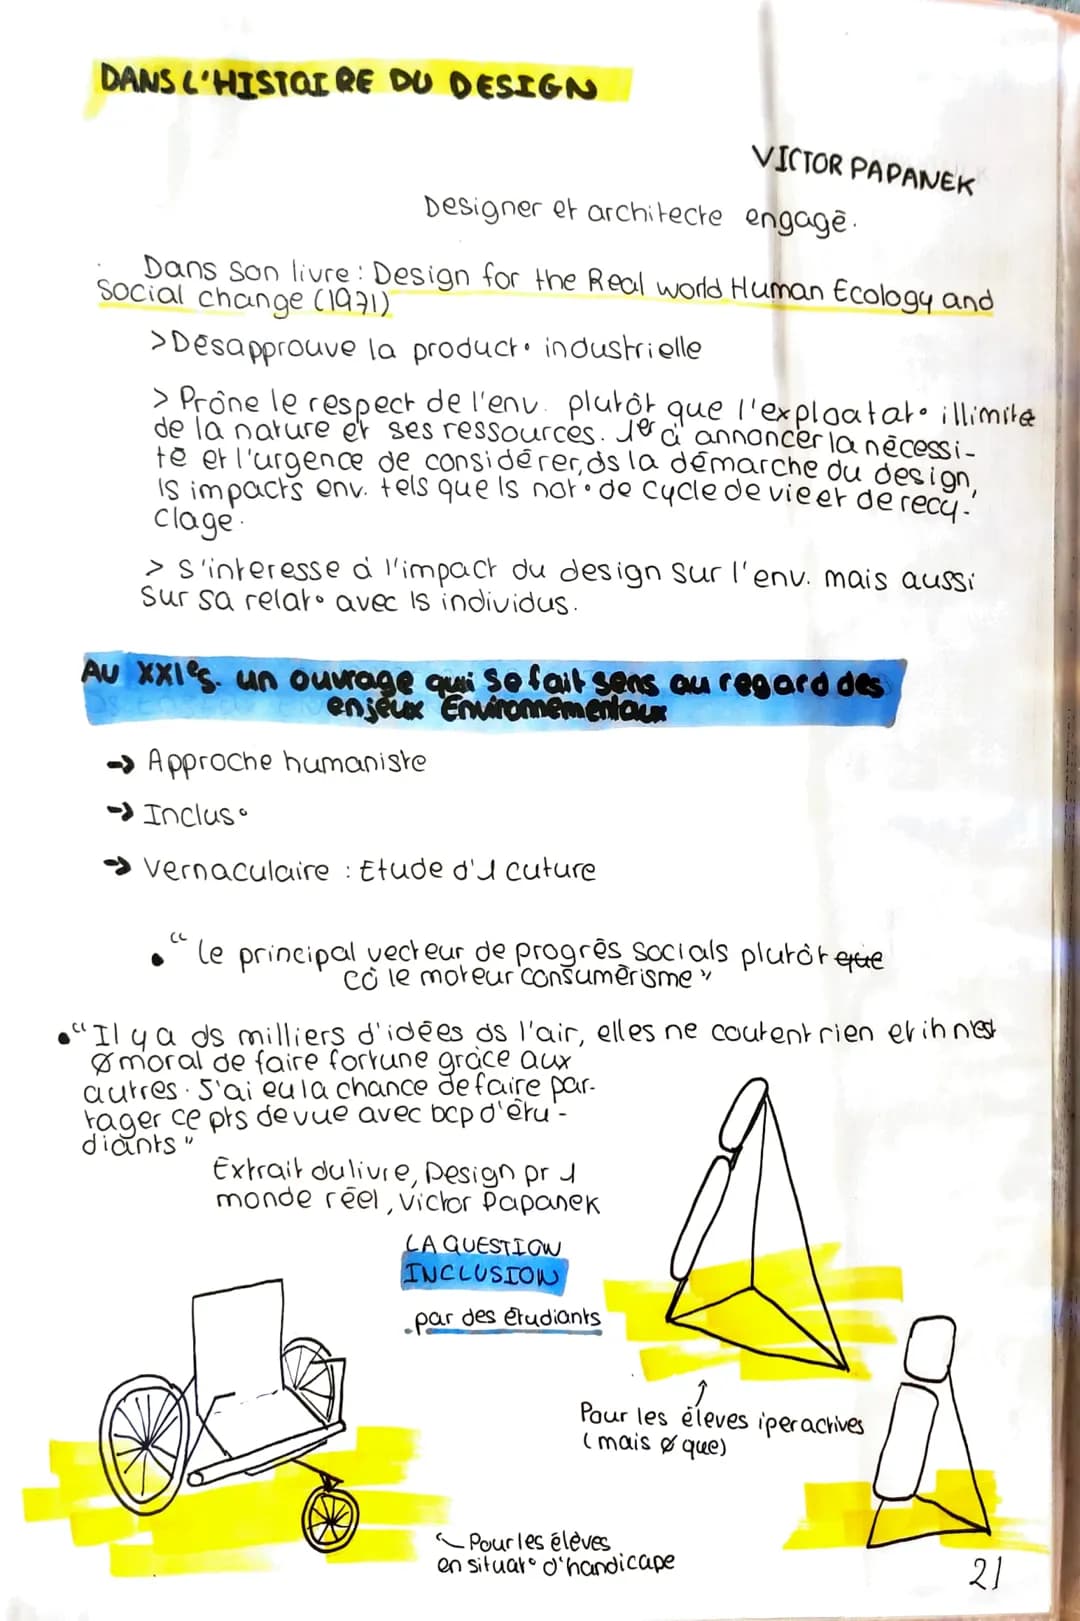 DANS L'HISTOIRE DU DESIGN
VICTOR PAPANEK
Designer et architecte engagé.
Dans son livre : Design for the Real world Human Ecology and
social change (1971)
>Désapprouve la product° industrielle
> Prône le respect de l'env. plutôt que l'exploatat° illimité
de la nature et ses ressources. 1er à annoncer la nécessi-
té et l'urgence de considérer, ds la démarche du design,
ls impacts env. tels que ls not° de cycle de vie et de recy-
clage.
> s'interesse à l'impact du design sur l'env. mais aussi
sur sa relat° avec ls individus.
AU XXIe s. un ouvrage qui se fait sens au regard des
enjeux Environnementaux
→ Approche humaniste
→ Inclus°
→ Vernaculaire : Etude d'1 cuture
• “ le principal vecteur de progrès socials plutôt que
cô le moteur consumérisme ”
• “ Il y a ds milliers d'idées ds l'air, elles ne coutent rien et ih n'est
Ø moral de faire fortune grâce aux
autres. J'ai eu la chance de faire par-
tager ce pts de vue avec bcp d'étu-
diants "
Extrait du livre, Design pr 1
monde réel, Victor Papanek
LA QUESTION
INCLUSION
par des étudiants
Pour les éleves iperactives
(mais Ø que)
Pour les élèves
en situat° d'handicape
21